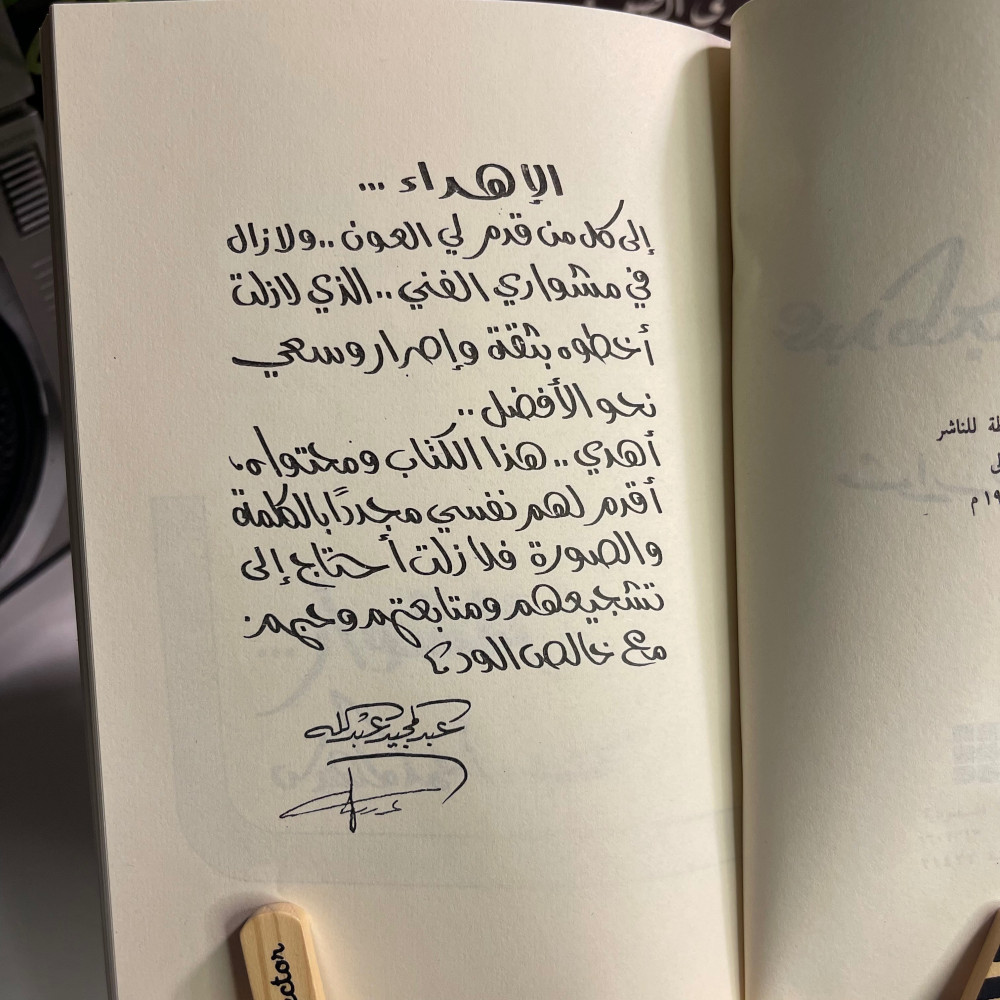 الإهداء ...
إلى كل من قدم لي العون .. ولازال
في مشواري الفني .. الذي لازلت
أخطوه بثقة وإصرار وسعي
نحو الأفضل ..
أهدي .. هذا الكتاب ومحتواه،
أقدم لهم نفسي مجددًا بالكلمة
والصورة فلازلت أحتاج إلى
تشجيعهم ومتابعتهم وحبهم.
مع خالص الود؛
عبدالمجيد عبدالله
للناشر
م
ector